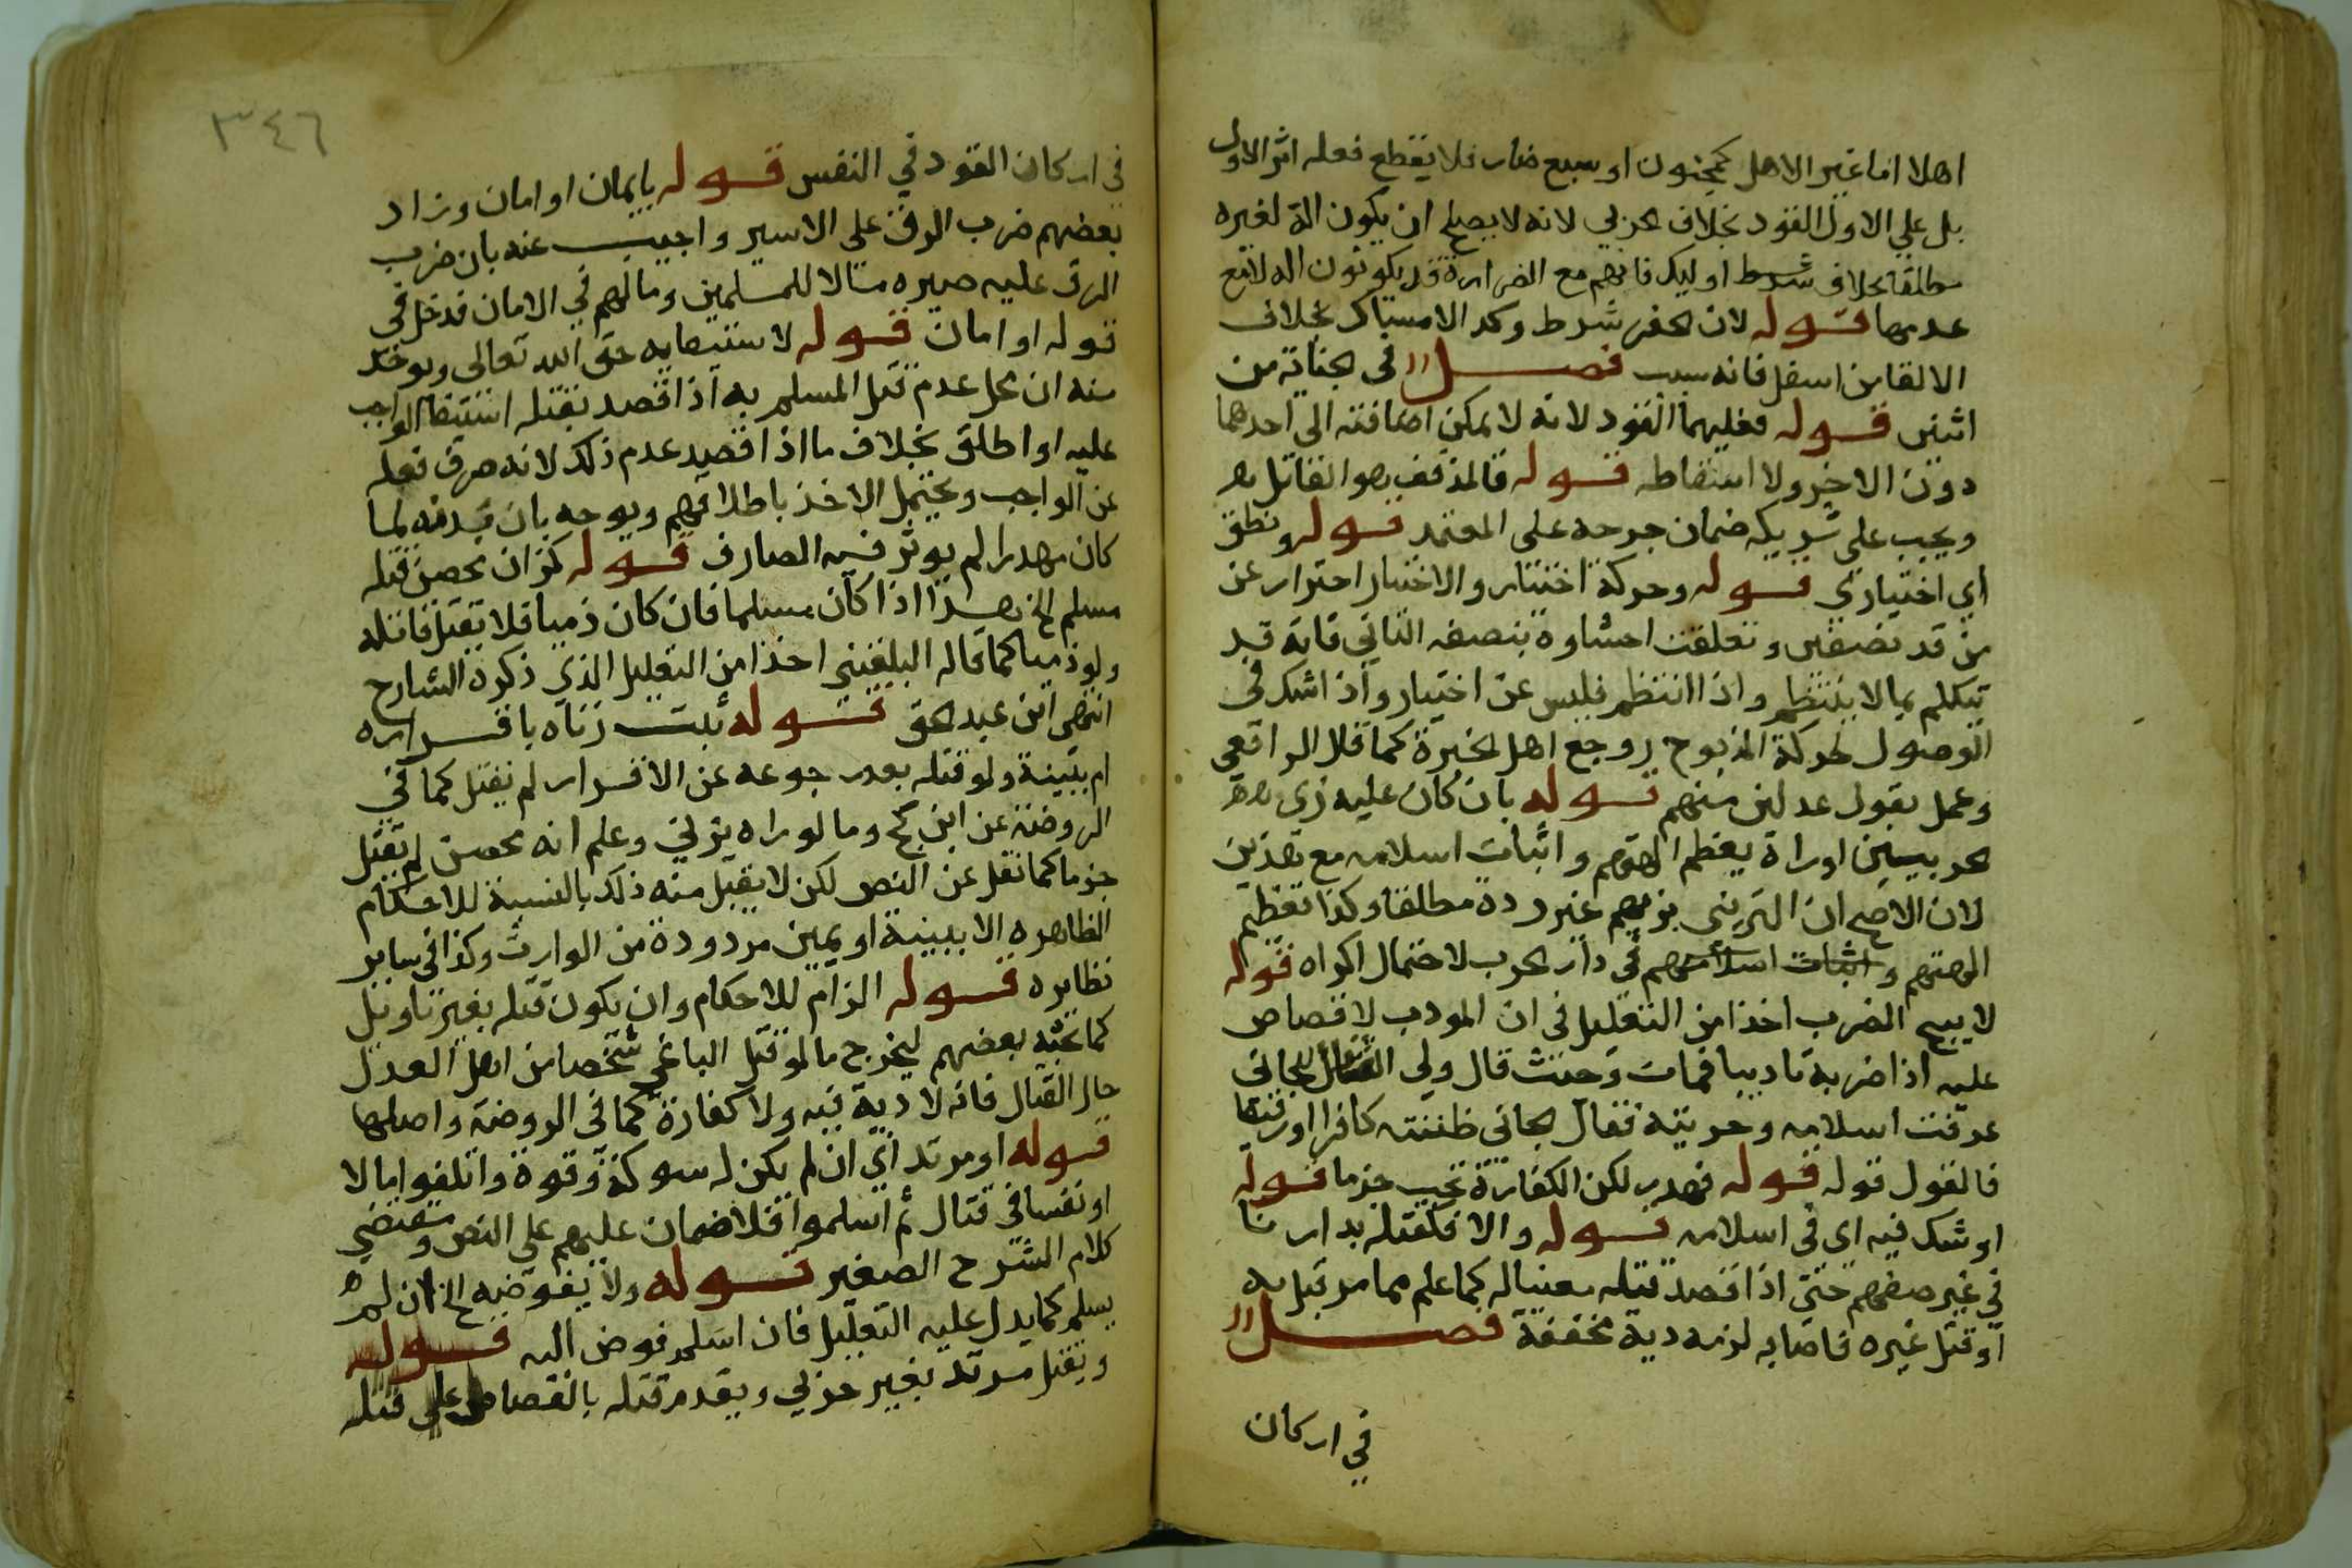 اهلا اما غير الاهل كمجنون او سبع ضار فلا يقطع فعله اثر الاول
بل علي الاول القود بخلاف الحربي لانه لا يصلح ان يكون الة لغيره
مطلقا بخلاف اوليك فانهم مع الضراوة قد يكونون اله لا مع
عدمها قوله لان الحفر شرط وكذ الامساك بخلاف
الالقا من اسفل فانه سبب فصل في الجناية من
اثنين قوله فعليهما القود لانه لا يمكن اضافته الي احدهما
دون الاخر ولا اسقاطه قوله فالمذفف هو القاتل
ويجب علي شريكه ضمان جرحه علي المعتمد قوله ونطق
اي اختياري قوله وحركة اختيار والاختيار احتراز عن
من قد نصفين وتعلقت احشاوه بنصفه الثاني فانه قد
يتكلم بما لا ينتظم واذا انتظم فليس عن اختيار واذا شك في
الوصول لحركة المذبوح روجع اهل الخبرة كما قال الرافعي
وعمل بقول عدلين منهم قوله بان كان عليه زي
حربيين او راه يعظم الهتهم واثبات اسلامه مع هذين
لان الاصح ان التزيي بزيهم غير ردة مطلقا وكذا تعظيم
الهتهم في دار الحرب لاحتمال اكراه قوله
لا يبيح الضرب اخذا من التعليل في ان المودب لا قصاص
عليه اذا ضربه تاديبا فمات وحيث قال ولي القتيل للجاني
عرفت اسلامه وحريته فقال الجاني ظننته كافرا او رقيقا
فالقول قوله قوله فهدر لكن الكفارة تجب جزما قوله
او شك فيه اي في اسلامه قوله والا فكقتله بدارنا
في غير صفهم حتي اذا قصد قتله بعينه كما علم مما مر قتل به
او قتل غيره فاصابه لزمه دية مخففة فصل
في اركان
٣٤٦
في اركان القود في النفس قوله بايمان او امان وزاد
بعضهم ضرب الرق علي الاسير واجيب عنه بان ضرب
الرق عليه صيره مالا للمسلمين ومالهم في الامان فدخل في
قوله او امان قوله لاستيفايه حق الله تعالي ويوخذ
منه ان محل عدم قتل المسلم به اذا قصد بقتله استيفا الواجب
عليه او اطلق بخلاف ما اذا قصد عدم ذلك لانه صرف فعله
عن الواجب ويحتمل الاخذ باطلاقهم ويوجه بان دمه لما
كان مهدرا لم يوثر فيه الصارف قوله كزان محصن قتله
مسلم الخ هذا اذا كان مسلما فان كان ذميا فلا يقتل قاتله
ولو ذميا كما قاله البلقيني اخذا من التعليل الذي ذكره الشارح
انتهي ابن عبد الحق قوله ثبت زناه باقراره
ام ببينة ولو قتله بعد رجوعه عن الاقرار لم يقتل كما في
الروضة عن ابن كج وما لو راه يزني وعلم انه محصن لم يقتل
جزما كما نقل عن النص لكن لا يقبل منه ذلك بالنسبة للاحكام
الظاهره الا ببينة او يمين مردودة من الوارث وكذا في ساير
نظايره قوله التزام للاحكام وان يكون قتله بغير تاويل
كما بحثه بعضهم ليخرج ما لو قتل الباغي شخصا من اهل العدل
حال القتال فانه لا دية فيه ولا كفارة كما في الروضة واصلها
قوله او مرتد اي ان لم يكن له شوكة وقوة واتلفوا مالا
او نفسا في قتال ثم اسلموا فلا ضمان عليهم علي النص ومقتضي
كلام الشرح الصغير قوله ولا يفوضه الخ ان لم
يسلم كما يدل عليه التعليل فان اسلم فوض اليه قوله
ويقتل مرتد بغير حربي ويقدم قتله بالقصاص علي قتله